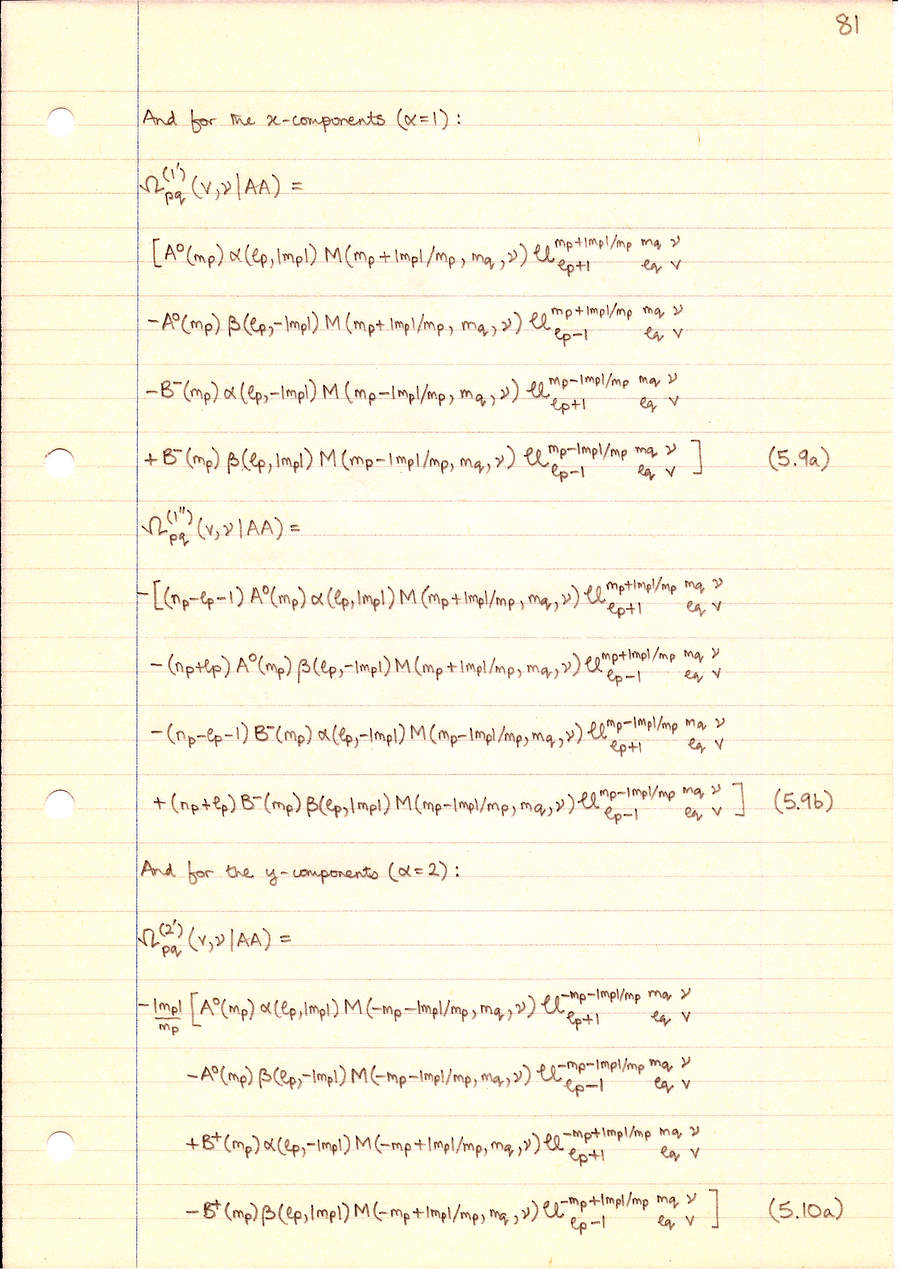 81
And for the x-components (α=1) :
Ω_pq^(1') (v,ν|AA) =
[A⁰(mp) α(ℓp,|mp|) M(mp+|mp|/mp, mq, ν) U_{ℓp+1 ℓq v}^{mp+|mp|/mp mq ν}
-A⁰(mp) β(ℓp,-|mp|) M(mp+|mp|/mp, mq, ν) U_{ℓp-1 ℓq v}^{mp+|mp|/mp mq ν}
-B⁻(mp) α(ℓp,-|mp|) M(mp-|mp|/mp, mq, ν) U_{ℓp+1 ℓq v}^{mp-|mp|/mp mq ν}
+B⁻(mp) β(ℓp,|mp|) M(mp-|mp|/mp, mq, ν) U_{ℓp-1 ℓq v}^{mp-|mp|/mp mq ν} ] (5.9a)
Ω_pq^(1'') (v,ν|AA) =
-[(np-ℓp-1) A⁰(mp) α(ℓp,|mp|) M(mp+|mp|/mp, mq, ν) U_{ℓp+1 ℓq v}^{mp+|mp|/mp mq ν}
-(np+ℓp) A⁰(mp) β(ℓp,-|mp|) M(mp+|mp|/mp, mq, ν) U_{ℓp-1 ℓq v}^{mp+|mp|/mp mq ν}
-(np-ℓp-1) B⁻(mp) α(ℓp,-|mp|) M(mp-|mp|/mp, mq, ν) U_{ℓp+1 ℓq v}^{mp-|mp|/mp mq ν}
+(np+ℓp) B⁻(mp) β(ℓp,|mp|) M(mp-|mp|/mp, mq, ν) U_{ℓp-1 ℓq v}^{mp-|mp|/mp mq ν} ] (5.9b)
And for the y-components (α=2) :
Ω_pq^(2') (v,ν|AA) =
-|mp|/mp [A⁰(mp) α(ℓp,|mp|) M(-mp-|mp|/mp, mq, ν) U_{ℓp+1 ℓq v}^{-mp-|mp|/mp mq ν}
-A⁰(mp) β(ℓp,-|mp|) M(-mp-|mp|/mp, mq, ν) U_{ℓp-1 ℓq v}^{-mp-|mp|/mp mq ν}
+B⁺(mp) α(ℓp,-|mp|) M(-mp+|mp|/mp, mq, ν) U_{ℓp+1 ℓq v}^{-mp+|mp|/mp mq ν}
-B⁺(mp) β(ℓp,|mp|) M(-mp+|mp|/mp, mq, ν) U_{ℓp-1 ℓq v}^{-mp+|mp|/mp mq ν} ] (5.10a)